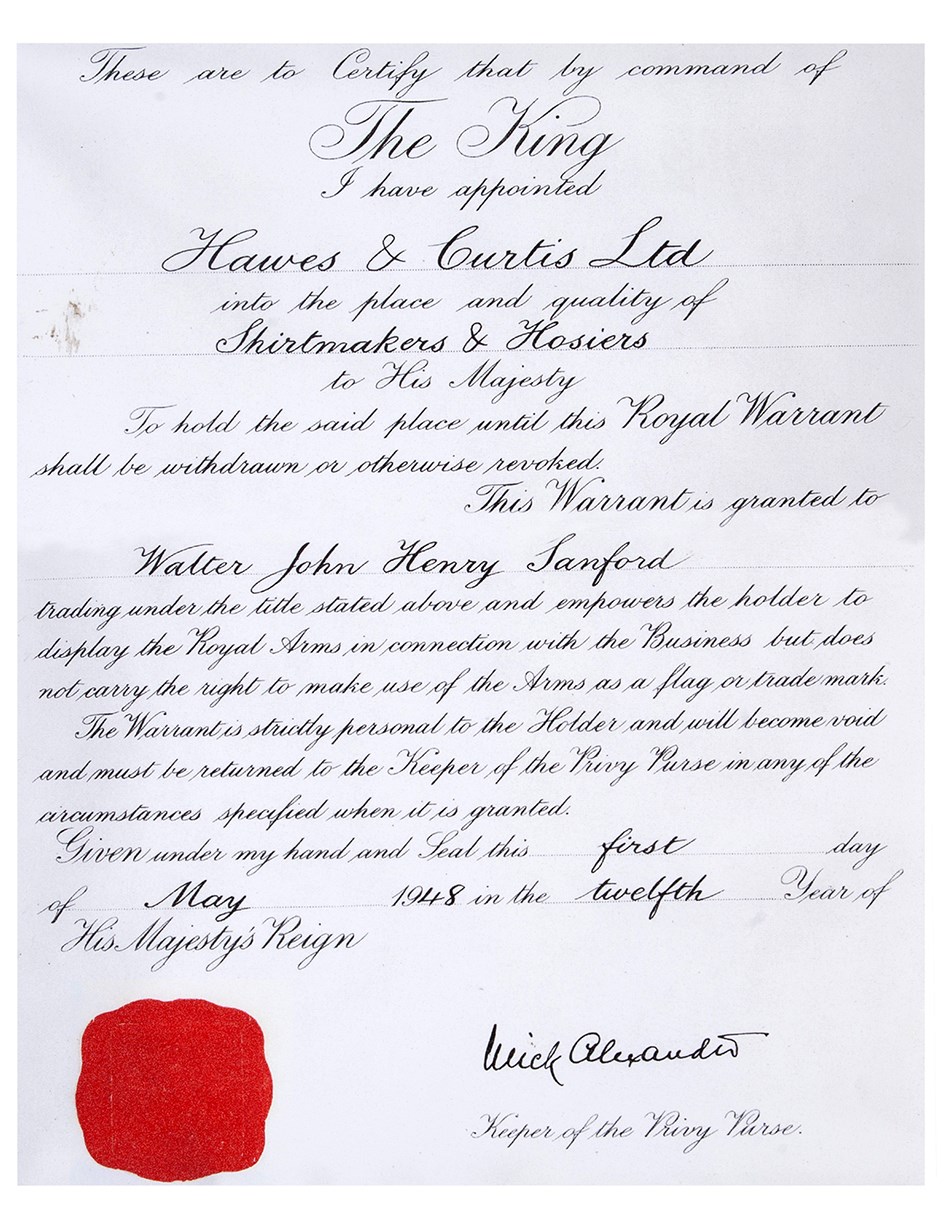 These are to Certify that by command of
The King
I have appointed
Hawes & Curtis Ltd
into the place and quality of
Shirtmakers & Hosiers
to His Majesty
To hold the said place until this Royal Warrant
shall be withdrawn or otherwise revoked.
This Warrant is granted to
Walter John Henry Sanford
trading under the title stated above and empowers the holder to
display the Royal Arms in connection with the Business but does
not carry the right to make use of the Arms as a flag or trade mark.
The Warrant is strictly personal to the Holder and will become void
and must be returned to the Keeper of the Privy Purse in any of the
circumstances specified when it is granted.
Given under my hand and Seal this first day
of May 1948 in the twelfth Year of
His Majesty's Reign
Ulick Alexander
Keeper of the Privy Purse.